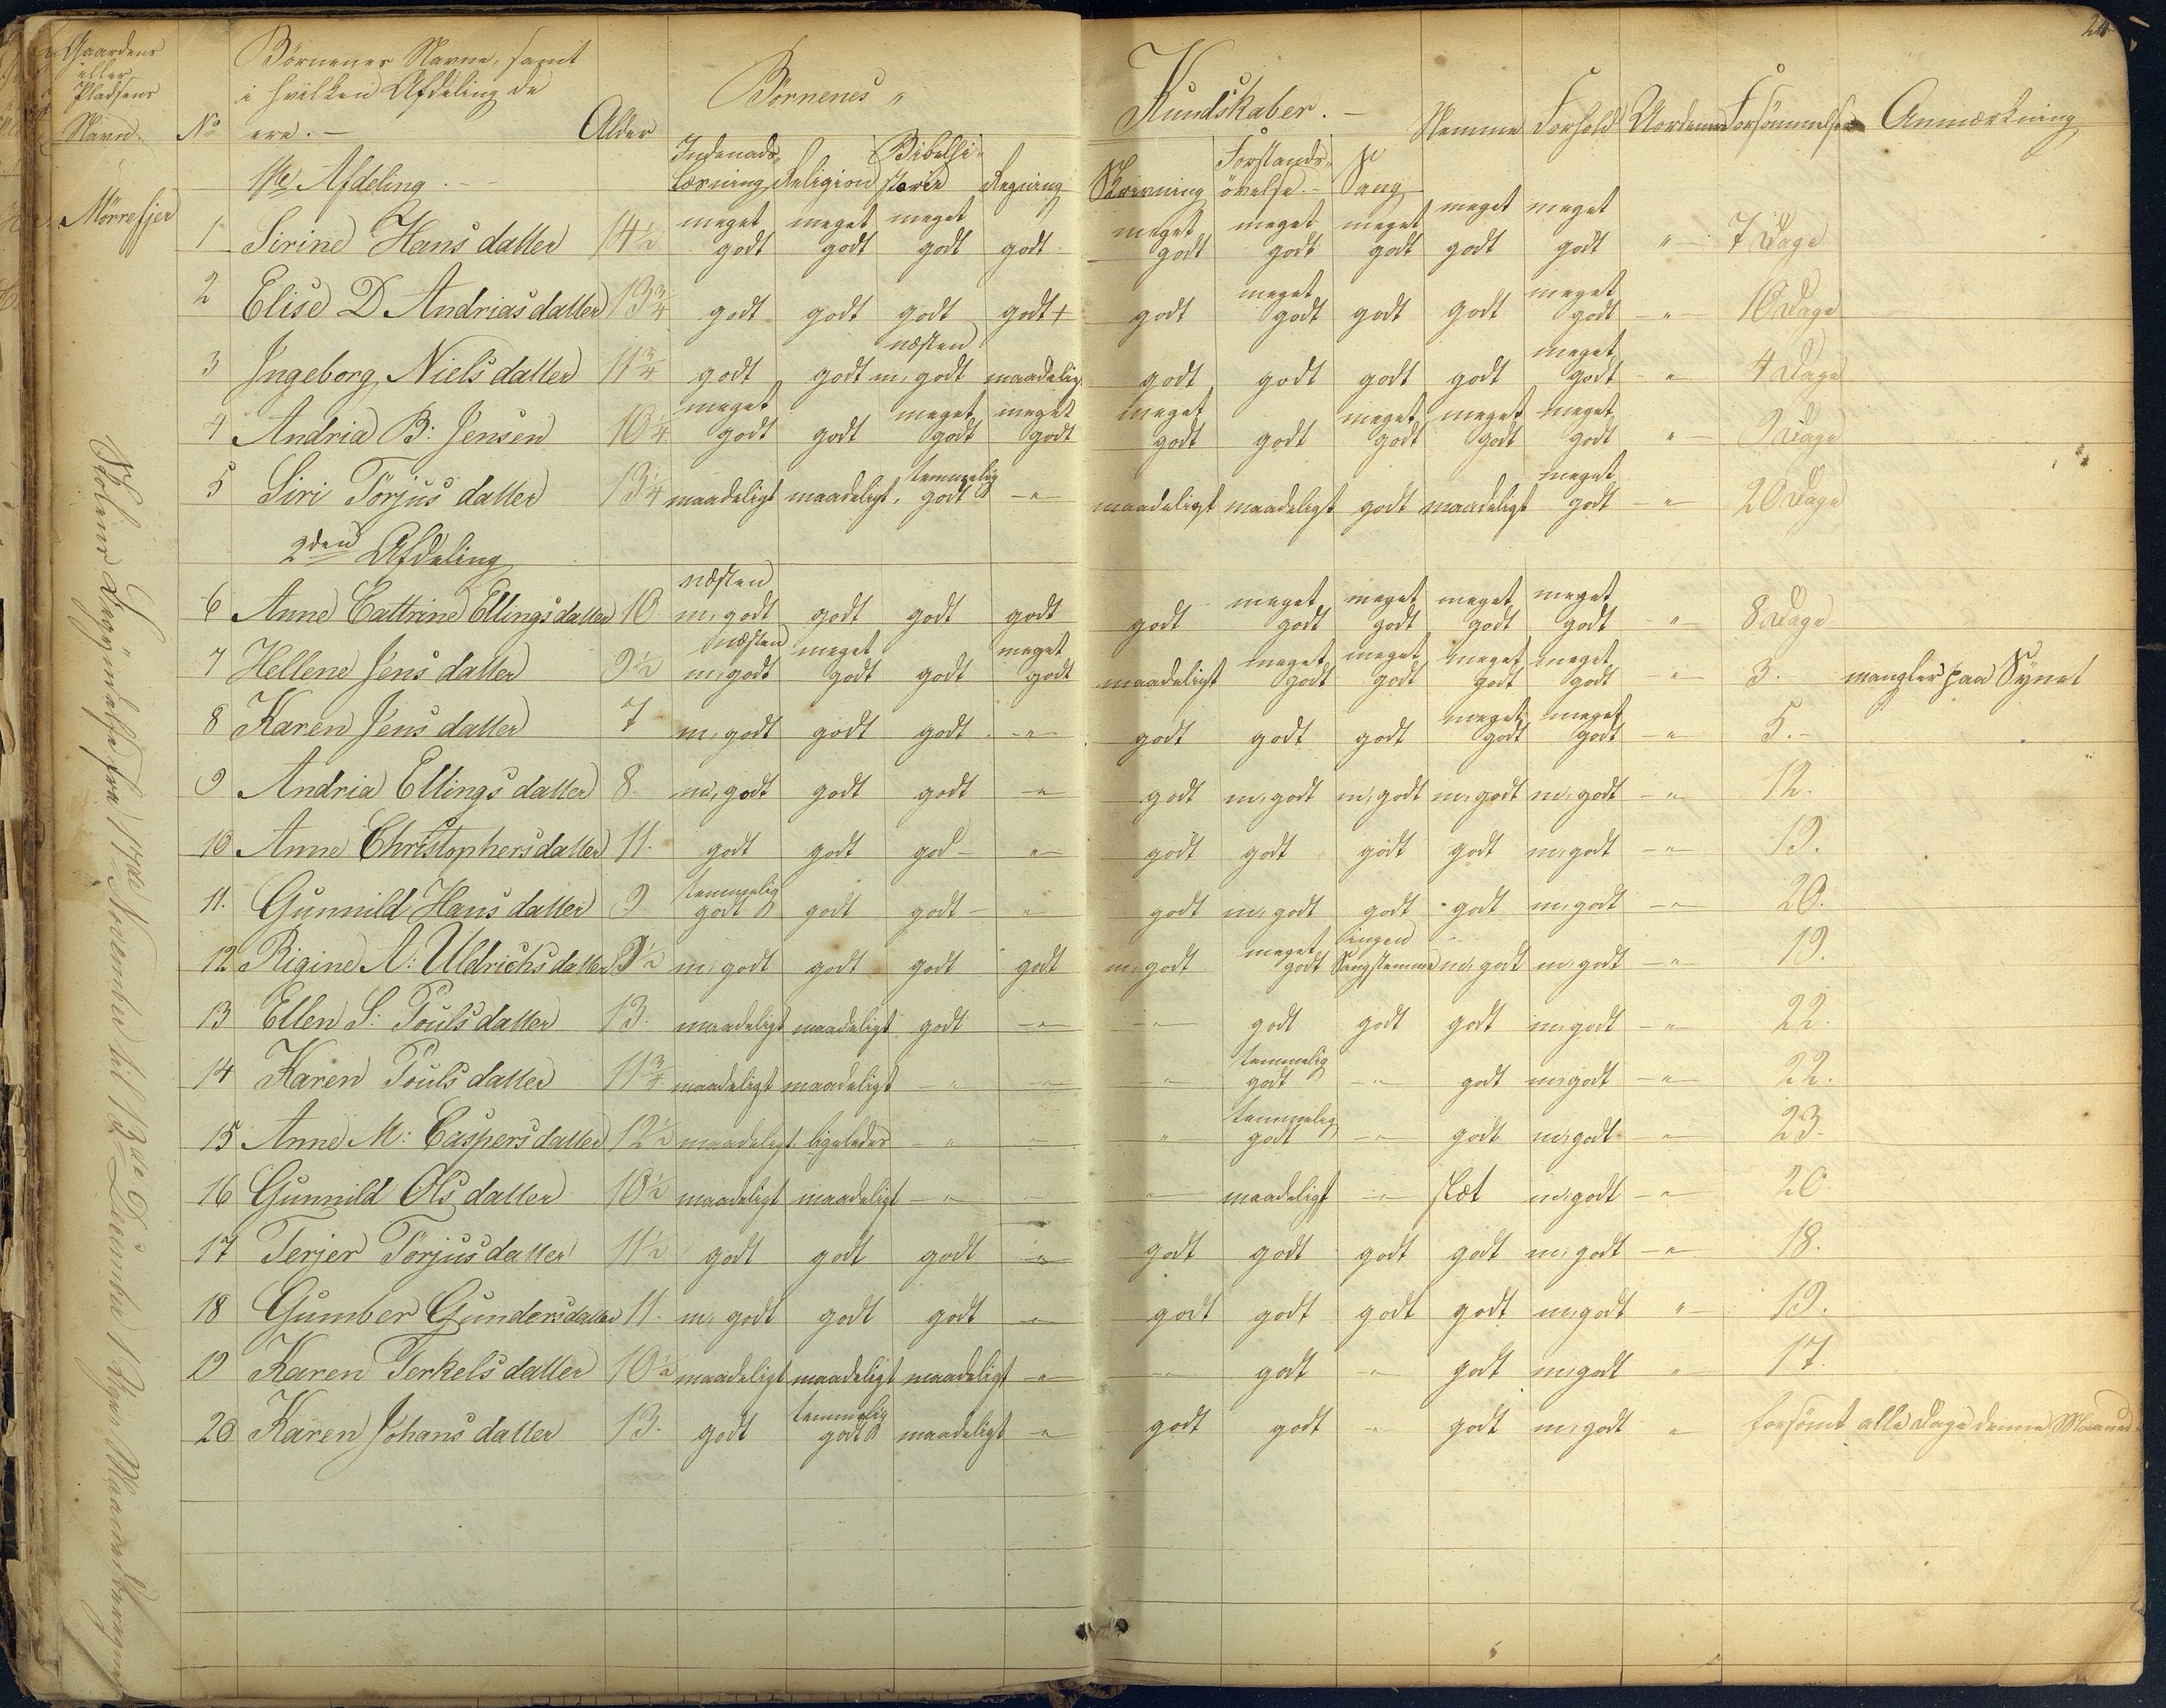 24
Gaardens
eller
Pladsens
Navn.
No
Børnenes Navne, samt
i hvilken Afdeling de
ere. —
Alder
Børnenes "
Kundskaber. —
Nemme Forhold Uorden Forsømmelse Anmærkning
Indenads-
læsning Religion Bibelhi-
storie Regning Skrivning Forstands-
øvelse. — Sang
Mørrefjer
1ste Afdeling. —
1 Sirine Hans datter 14½ meget godt meget godt meget godt godt meget godt meget godt meget godt meget godt meget godt " 7 Dage
2 Elise D Andrias datter 13¾ godt godt godt godt + godt meget godt godt godt meget godt " 10 Dage
3 Ingeborg Niels datter 11¾ godt godt næsten m. godt maadelig godt godt godt godt meget godt " 4 Dage
4 Andria B: Jensen 10¼ meget godt godt meget godt meget godt meget godt godt meget godt meget godt meget godt " 9 Dage
5 Siri Törjus datter 13¼ maadeligt maadeligt, temmelig godt " maadeligt maadeligt godt maadeligt meget godt " 20 Dage
2den Afdeling
6 Anne Cattrine Ellings datter 10 næsten m, godt godt godt godt godt meget godt meget godt meget godt meget godt " 8 Dage
7 Hellene Jens datter 9½ næsten m, godt meget godt godt meget godt maadeligt meget godt meget godt meget godt meget godt " 3. mangler paa Synet
8 Karen Jens datter 7 m, godt godt godt " godt godt godt meget godt meget godt " 5. -
9 Andria Ellings datter 8. m, godt godt godt " godt m, godt m, godt m, godt m, godt " 12.
10 Anne Christophersdatter 11. godt godt god " godt godt godt godt m, godt " 19.
11. Gunnild Hans datter 9 temmelig godt godt godt " godt m, godt godt godt m, godt " 20.
12 Rigine A: Uldrichs datter 9½ m, godt godt godt godt m, godt meget godt ingen Sangstemme m, godt m, godt " 19.
13 Ellen S: Pouls datter 13. maadeligt maadeligt godt " " godt godt godt m, godt " 22.
14 Karen Pouls datter 11¾ maadeligt maadeligt " " " temmelig godt " godt m, godt " 22.
15 Anne M: Caspers datter 12½ maadeligt ligeledes " " " temmelig godt " godt m, godt " 23.
16 Gunnild Ols datter 10½ maadeligt maadeligt " " " maadeligt " slet m, godt " 20.
17 Terjer Törjus datter 11½ godt godt godt " godt godt godt godt m, godt " 18.
18 Gumber Gundersdatter 11. m, godt godt godt " godt godt godt godt m, godt " 19.
19 Karen Terkels datter 10½ maadeligt maadeligt maadeligt " " godt " godt m, godt " 17.
20 Karen Johans datter 13. godt temmelig godt maadeligt " godt godt " godt m, godt " forsömt alle Dage denne Maaned.
fra 17de November til 13de December